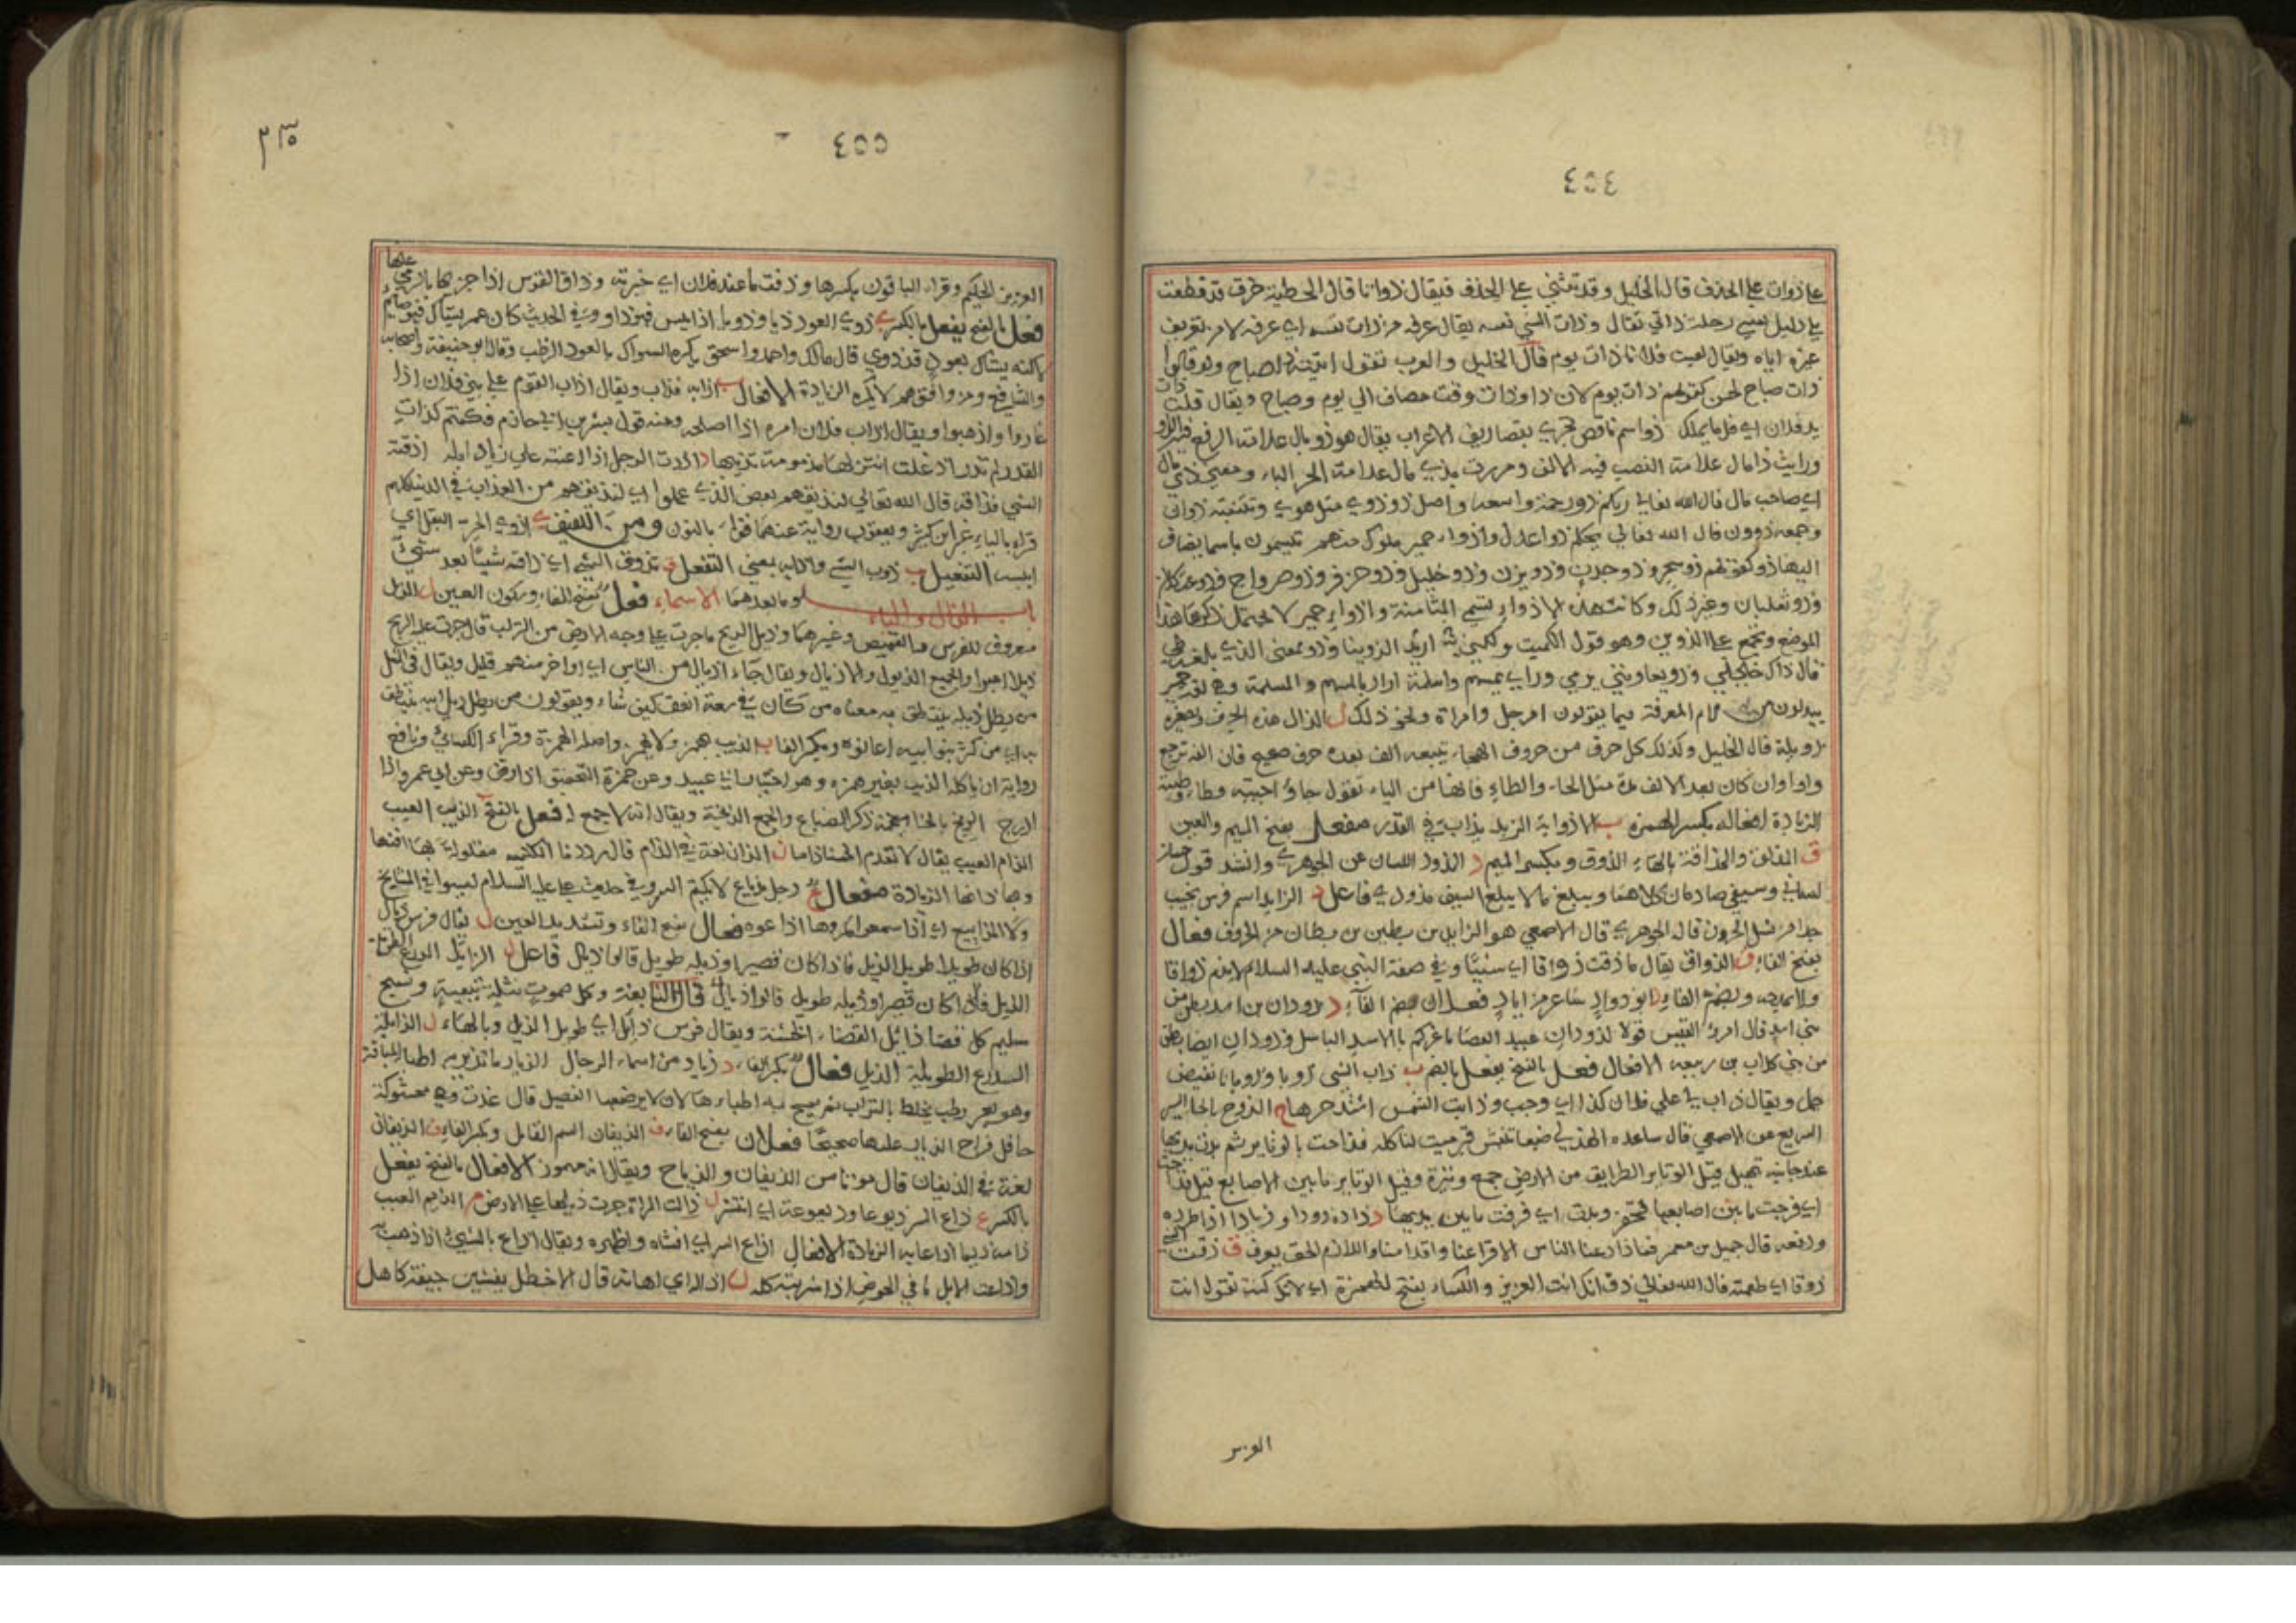 ٤٥٤
علي ذوات علي الحذف قال الخليل وقد تثني علي الحذف فيقال ذواتا قال الحطيئة خرق قد قطعت
بلا دليل بعيني رحلت ذاتي تقال وذات الشي نفسه يقال عرفه من ذات نفسه اي عرفه لا من تعريف
غيره اياه ويقال لقيت فلانا ذات يوم قال الخليل والعرب تقول اتيته ذا صباح ولو قالوا
ذات صباح لحسن كقولهم ذات يوم لان ذا وذات وقت مضاف الي يوم وصباح ويقال قلت ذات
يد فلان اي قل ما يملك ذو اسم ناقص تجري بتصاريف الاعراب يقال هو ذو مال علامة الرفع فيه الواو
ورايت ذا مال علامة النصب فيه الالف ومررت بذي مال علامة الجر الياء ومعني ذي مال
اي صاحب مال قال الله تعالي ربكم ذو رحمة واسعة واصل ذو ذوي مثل هوي وتثنيته ذوان
وجمعه ذوون قال الله تعالي يحكم به ذوا عدل واذواء حمير ملوك منهم تسمون باسما يضاف
اليها ذو كقولهم ذو سحر وذو جدن وذو يزن وذو خليل وذو حزفر وذو صرواح وذو عثكلان
وذو ثعلبان وغير ذلك وكانت هذه الاذواء تسمي المثامنة والاذواء حمير لا يحتمل ذكرها هذا
الموضع وتجمع علي الذوين وهو قول الكميت ولكني اريد الذوينا وذو بمعني الذي بلغة طي
قال ذاك خليلي وذو يعاتبني يرمي ورائي بامسهم وامسلمة اراد بالسهم والسلمة وهي لغة حمير
يبدلون من لام المعرفة ميما يقولون امرجل وامراة ونحو ذلك ل الذال هذه الحرف وتصغيره
ذويلة قال الخليل وكذلك كل حرف من حروف الهجاء يتبعه الف بعده حرف صحيح فان الفه ترجع
واوا وان كان بعد الالف مدة مثل الحاء والطاء فانها من الياء تقول حاء احييته وطاء وطييته
الزيادة افعاله بكسر الهمزه ب الاذوابة الزبد يذاب في القدر مفعل بفتح الميم والعين
ق المذاق والمذاقة بالهاء الذوق وبكسر الميم د المذود اللسان عن الجوهري وانشد قول حسان
لساني وسيفي صارمان كلاهما ويبلغ ما لا يبلغ السيف مذودي فاعل د الزايد اسم فرس نجيب
جدا من نسل الحرون قال الجوهري قال الاصمعي هو الزايد بن بطين بن بطان من الحرون فعال
بفتح الفاء ق الذواق يقال ما ذقت ذواقا اي شيئا وفي صفة النبي عليه السلام لا يذم ذواقا
ولا يمدحه وبضم الفاء د ابو دواد شاعر من اياد فعلان بضم الفاء د ذودان بن اسد بطن من
بني اسد قال امرؤ القيس قولا لدودان عبيد العصا ما غركم بالاسد الباسل وذودان ايضا بطن
من بني كلاب بن ربيعه الافعال فعل بالفتح يفعل بالضم ب ذاب الشي ذوبا وذوبانا نقيض
جمد ويقال ذاب لي علي فلان كذا اي وجب وذابت الشمس اشتد حرها ح الذوح بالحا السير
السريع عن الاصمعي قال ساعده الهذلي ضبعا تنبش قبر ميت لتاكله فذاحت بالوتاير ثم بدت يديها
عند جانبه تهيل قيل الوتاير الطرايق من الارض جمع وتيرة وقيل الوتاير ما بين الاصابع قيل فذاحت
اي فرجت ما بين اصابعها لتحفر وبدت اي فرقت ما بين يديها د ذاده ذودا وذيادا اذا طرده
ودفعه قال جميل بن معمر فما ذادعنا الناس الا قراعنا واقدامنا واللازم الحق يعرف ق ذقت الشي
ذوقا اي طعمته قال الله تعالي ذق انك انت العزيز والكساء بفتح الهمزة اي لانك كنت تقول انت
العزيز
٤٥٥
٢٣٥
العزيز الحكيم وقراء الباقون بكسرها وذقت ما عند فلان اي خبرته وذاق القوس اذا جر بها بالرمي عنها
فعل بالفتح يفعل بالكسر ي ذوي العود ذيا وذويا اذا يبس فهو ذاو وفي الحديث كان عمر يستاك وهو صايم
لاكنه يستاك بعود قد ذوي قال مالك واحمد واسحق يكره السواك بالعود الرطب وقال ابو حنيفة واصحابه
والشافعي ومن وافقهم لا يكره الزيادة الافعال ب اذابه فذاب ويقال اذاب القوم علي بني فلان اذا
غاروا واذهبوا ويقال اذاب فلان امره اذا اصلحه ومنه قول بشر بن ابي حازم فكنتم كذات
القدر لم تدر اذ غلت انتزلها مذمومة تذيبها د اذدت الرجل اذا اعنته علي ذياد ابله اذقته
الشي فذاقه قال الله تعالي لنذيقهم بعض الذي عملوا اي لنذيقهم من العذاب في الدنيا كلهم
قراء بالياء غير ابن كثير ويعقوب رواية عنهما فقراء بالنون ومن اللفيف ي اذوي الحر البقل اي
ايبسه التفعيل ب ذوب الشي واذابه بمعني التفعل ق تذوق الشي اي ذاقه شيئا بعد شيء
باب الذال والياء وما بعدهما الاسماء فعل بفتح الفاء وسكون العين ل الذيل
معروف للفرس والقميص وغيرهما وذيل الريح ما جرت علي وجه الارض من التراب قال جرت عليه الريح
ذيلا اصبوا والجمع الذيول والاذيال ويقال جاء اذيال من الناس اي اواخر منهم قليل ويقال في المثل
من يطل ذيله ينتطق به معناه من كان في سعة انفق كيف شاء ويقولون من يطل ذيل ابيه ينتطق
به اي من كثر بنو ابيه اعانوه وبكسر الفا ب الذيب يهمز ولا يهمز واصله الهمزة وقراء الكسائي ونافع
رواية ان ياكله الذيب بغير همزه وهو اختيار ابي عبيد وعن حمزة التخفيف اذا وقف وعن ابي عمرو اذا
ادرج الذيخ بالخا معجمة ذكر الضباع والجمع الذيخة ويقال انه لا جمع له فعل بالفتح الذيب العيب
الذام العيب يقال لا تعدم الحسناء ذاما ن الذان لغة في الذام قال رددنا الكتيبه مفلولة بها افنها
وبها ذانها الزيادة مفعال ع رجل مذياع لا يكتم السر وفي حديث علي عليه السلام ليسوا بالمساييح
ولا المذاييع اي اذا سمعوا مكروها اذاعوه فعال بفتح الفاء وتشديد العين ل يقال فرس ذيال
اذا كان طويلا طويل الذيل فاذا كان قصيرا وذيله طويل قالوا ذيال فاعل ل الذايل الدرع الطويلة
الذيل فاذا كان قصيرا وذيله طويل قالوا ذيال قال النابغة وكل صموت نثلة تبعية ونسج
سليم كل قضا ذايل القضاء الخشنة ويقال فرس ذايل اي طويل الذيل وبالهاء ل الذايلة
الدرع الطويلة الذيل فعال بكسر الفاء د ذياد من اسماء الرجال الذيار ما تذير به اطبا الناقة
وهو بعر رطب يخلط بالتراب ثم يمسح به اطباءها لان لا يرضعها الفصيل قال غدت وهي محشوكة
حافل فراح الذيار عليها صحيحا فعلان بفتح الفاء ف الذيفان السم القاتل وبكسر الفاء ف الذيفان
لغة في الذيفان قال موتا من الذيفان والذباح ويقال انه مهموز الافعال بالفتح يفعل
بالكسر ع ذاع السر ذيوعا وذيعوعة اي انتشر ل ذالت المراة جرت ذيلها علي الارض م الذيم العيب
ذامه ذيما اذا عابه الزيادة الافعال اذاع السر اي افشاه واظهره ويقال اذاع بالشيء اذا ذهب به
واذاعت الابل ما في الحوض اذا شربته كله ل اذاله اي اهانه قال الاخطل يفشين جيفة كاهل